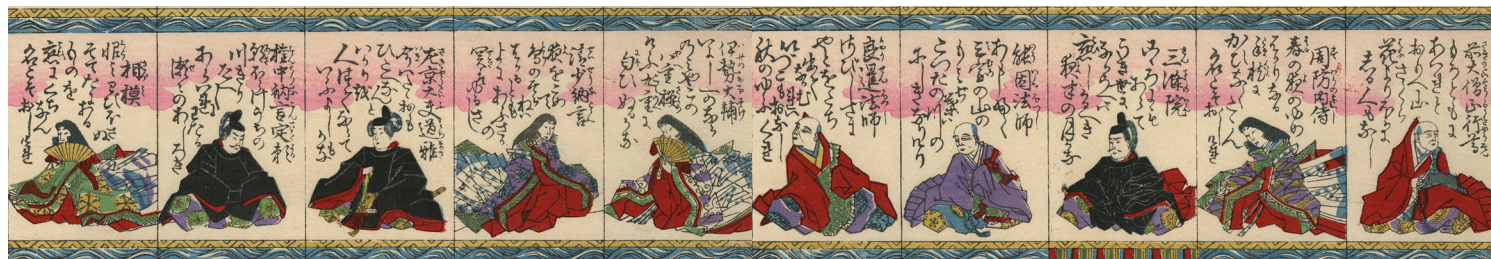 前大僧正行尊
もろともに
あはれと
おもへ山
さくら
花よりほかに
しる人もなし
周防内侍
春の夜のゆめ
はかりなる
手枕に
かひなくたゝん
名こそおしけれ
三條院
こゝろにも
あらて
うき世に
なからへは
恋しかるへき
夜半の月かな
能因法師
あらし吹
三室の山の
もみち葉は
たつ田の川の
にしきなりけり
良暹法師
さひしさに
やとをたち
出て
なかむれは
いつこもおなし
秋のゆふくれ
伊勢大輔
いにしへのなら
のみやこの
八重桜
けふ九重に
匂ひぬるかな
清少納言
夜をこめて
鳥のそらねは
はかるとも
よにあふさかの
関はゆるさし
左京大夫道雅
今はたゝおもひ
たえなんと
はかりを
人つてならて
いふよしもかな
権中納言定頼
朝ほらけうちの
川きり
たえ〳〵に
あらはれわたる
瀬々のあしろき
相模
恨わひほさぬ
そてたにある
ものを
恋にくちなん
名こそおしけれ